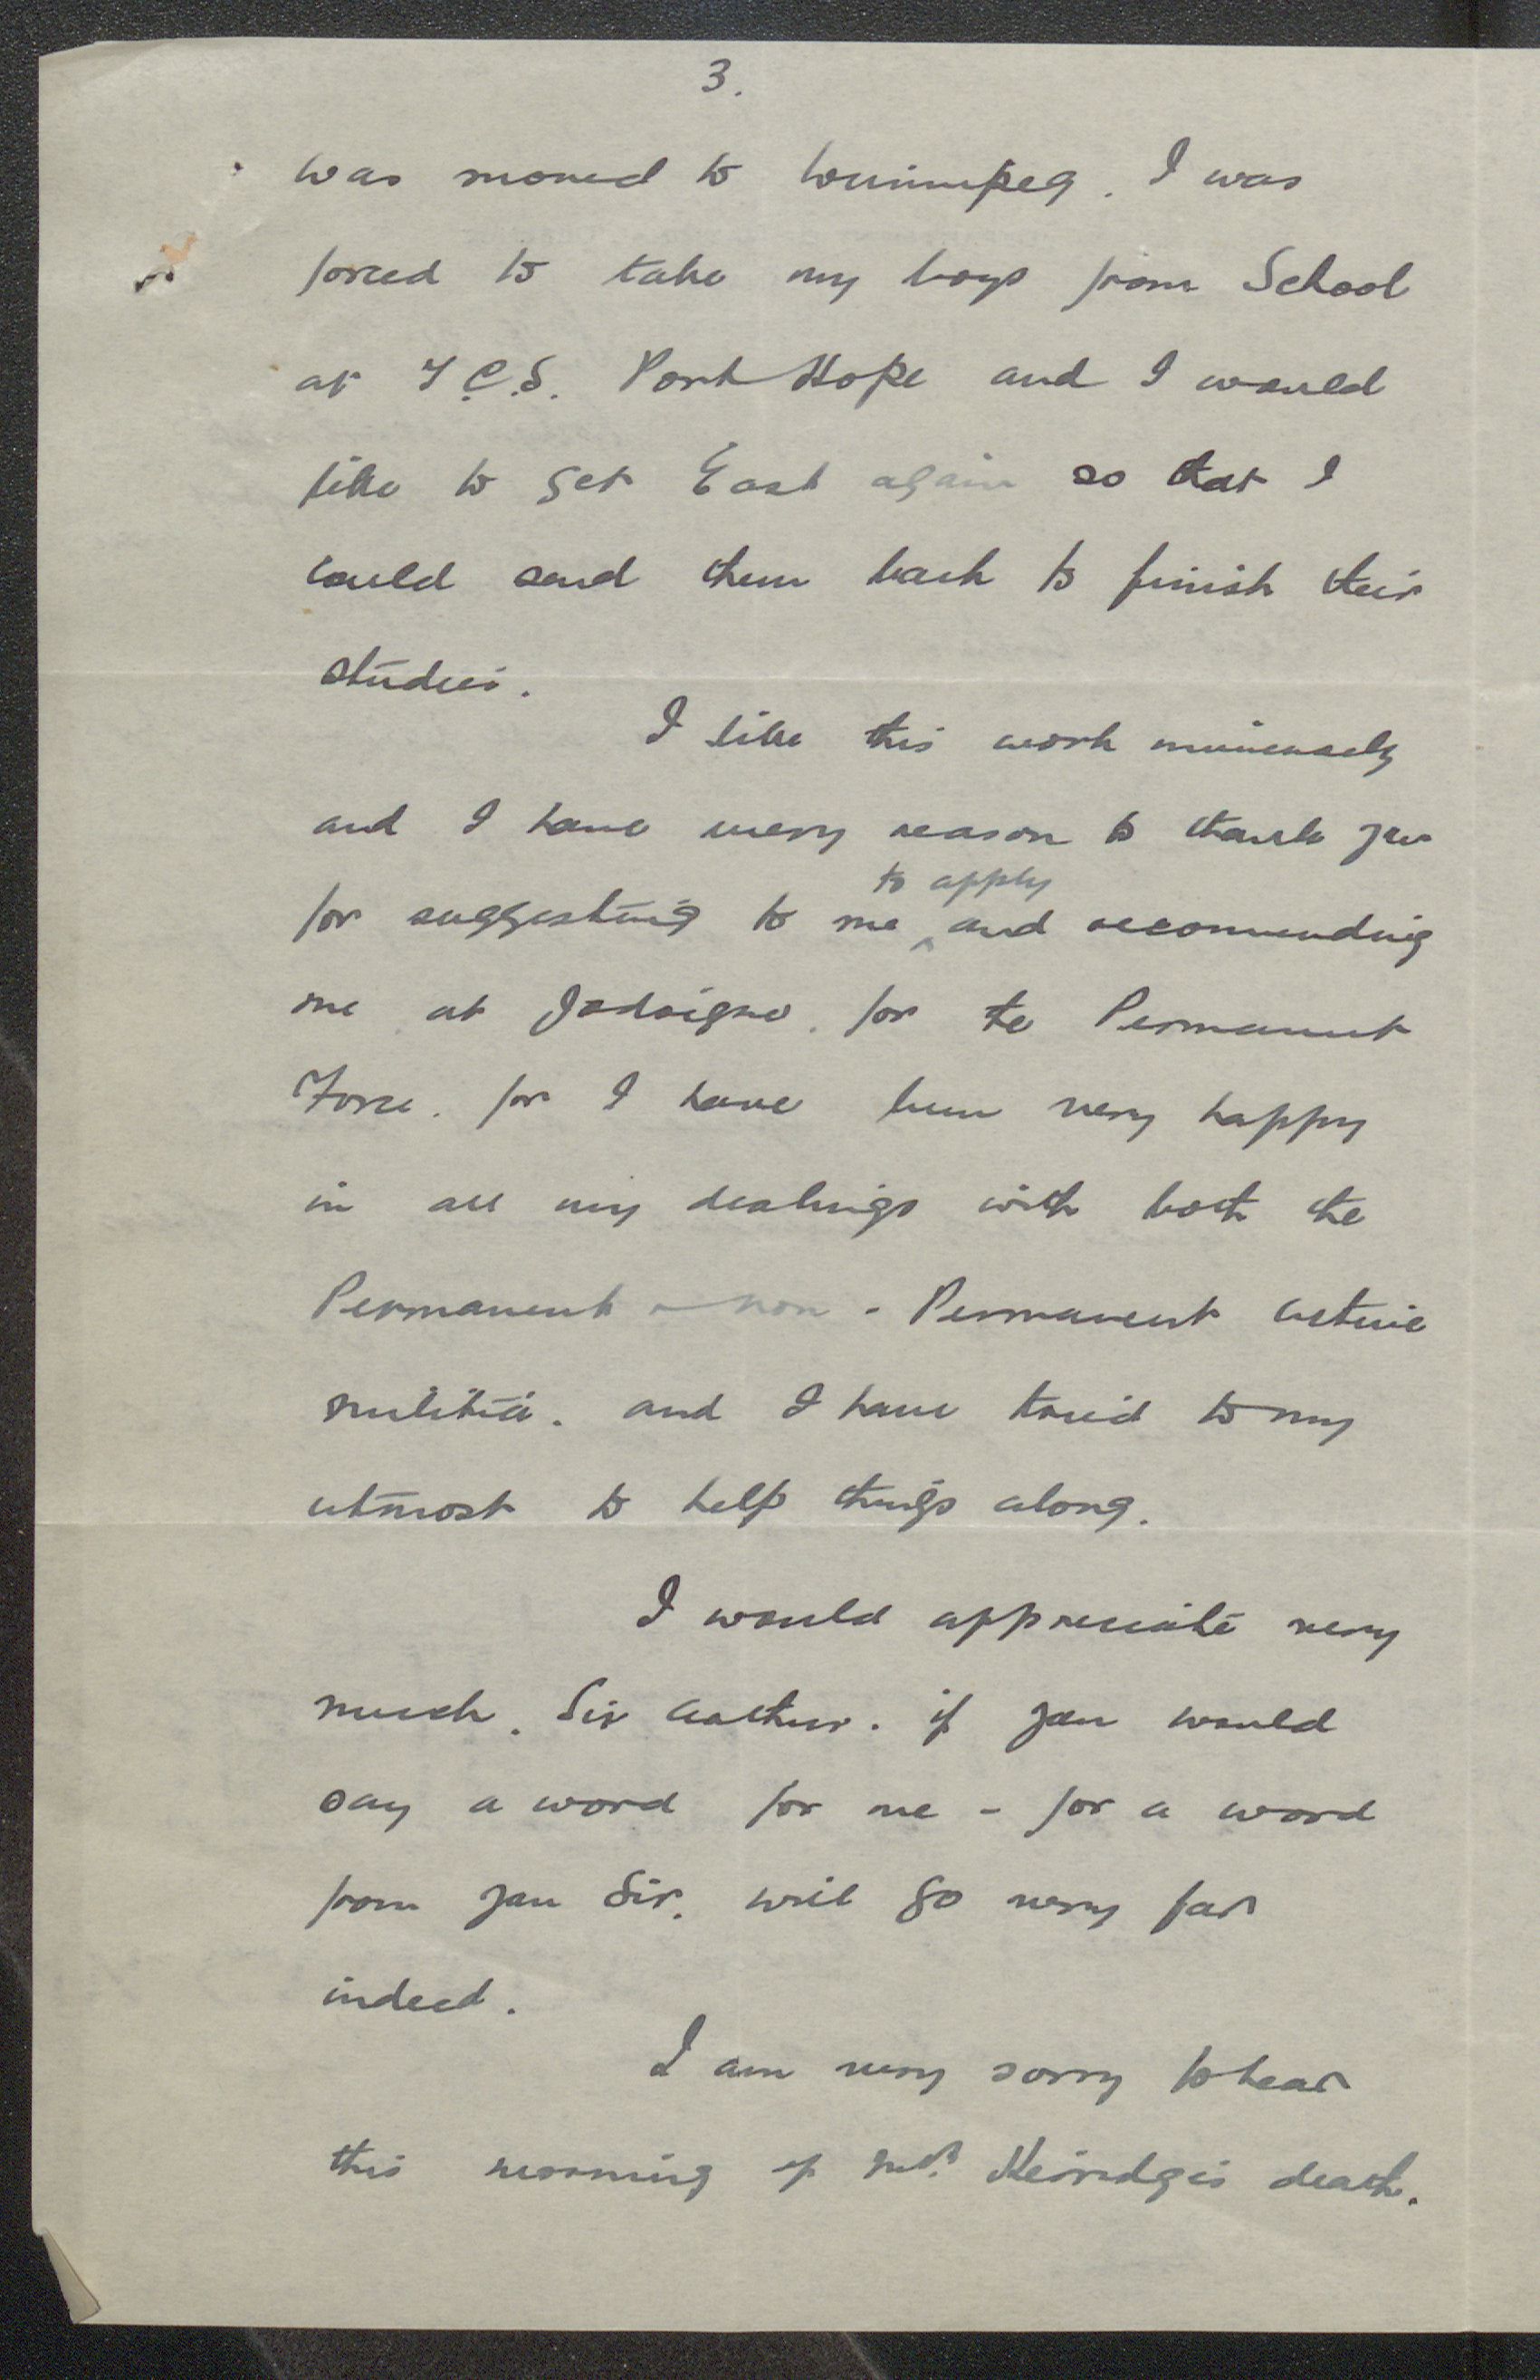 3.
was moved to Winnipeg. I was
forced to take my boys from School
at T.C.S. Port Hope and I would
like to get East again so that I
could send them back to finish their
studies.
I like this work immensely
and I have every reason to thank you
to apply
for suggesting to me ^ and recommending
me at Jodoigne. for the Permanent
Force. for I have been very happy
in all my dealings with both the
Permanent & non-Permanent active
militia. and I have tried to my
utmost to help things along.
I would appreciate very
much. Sir Arthur. if you would
say a word for me - for a word
from you Sir. will go very far
indeed.
I am very sorry to hear
this morning of death.